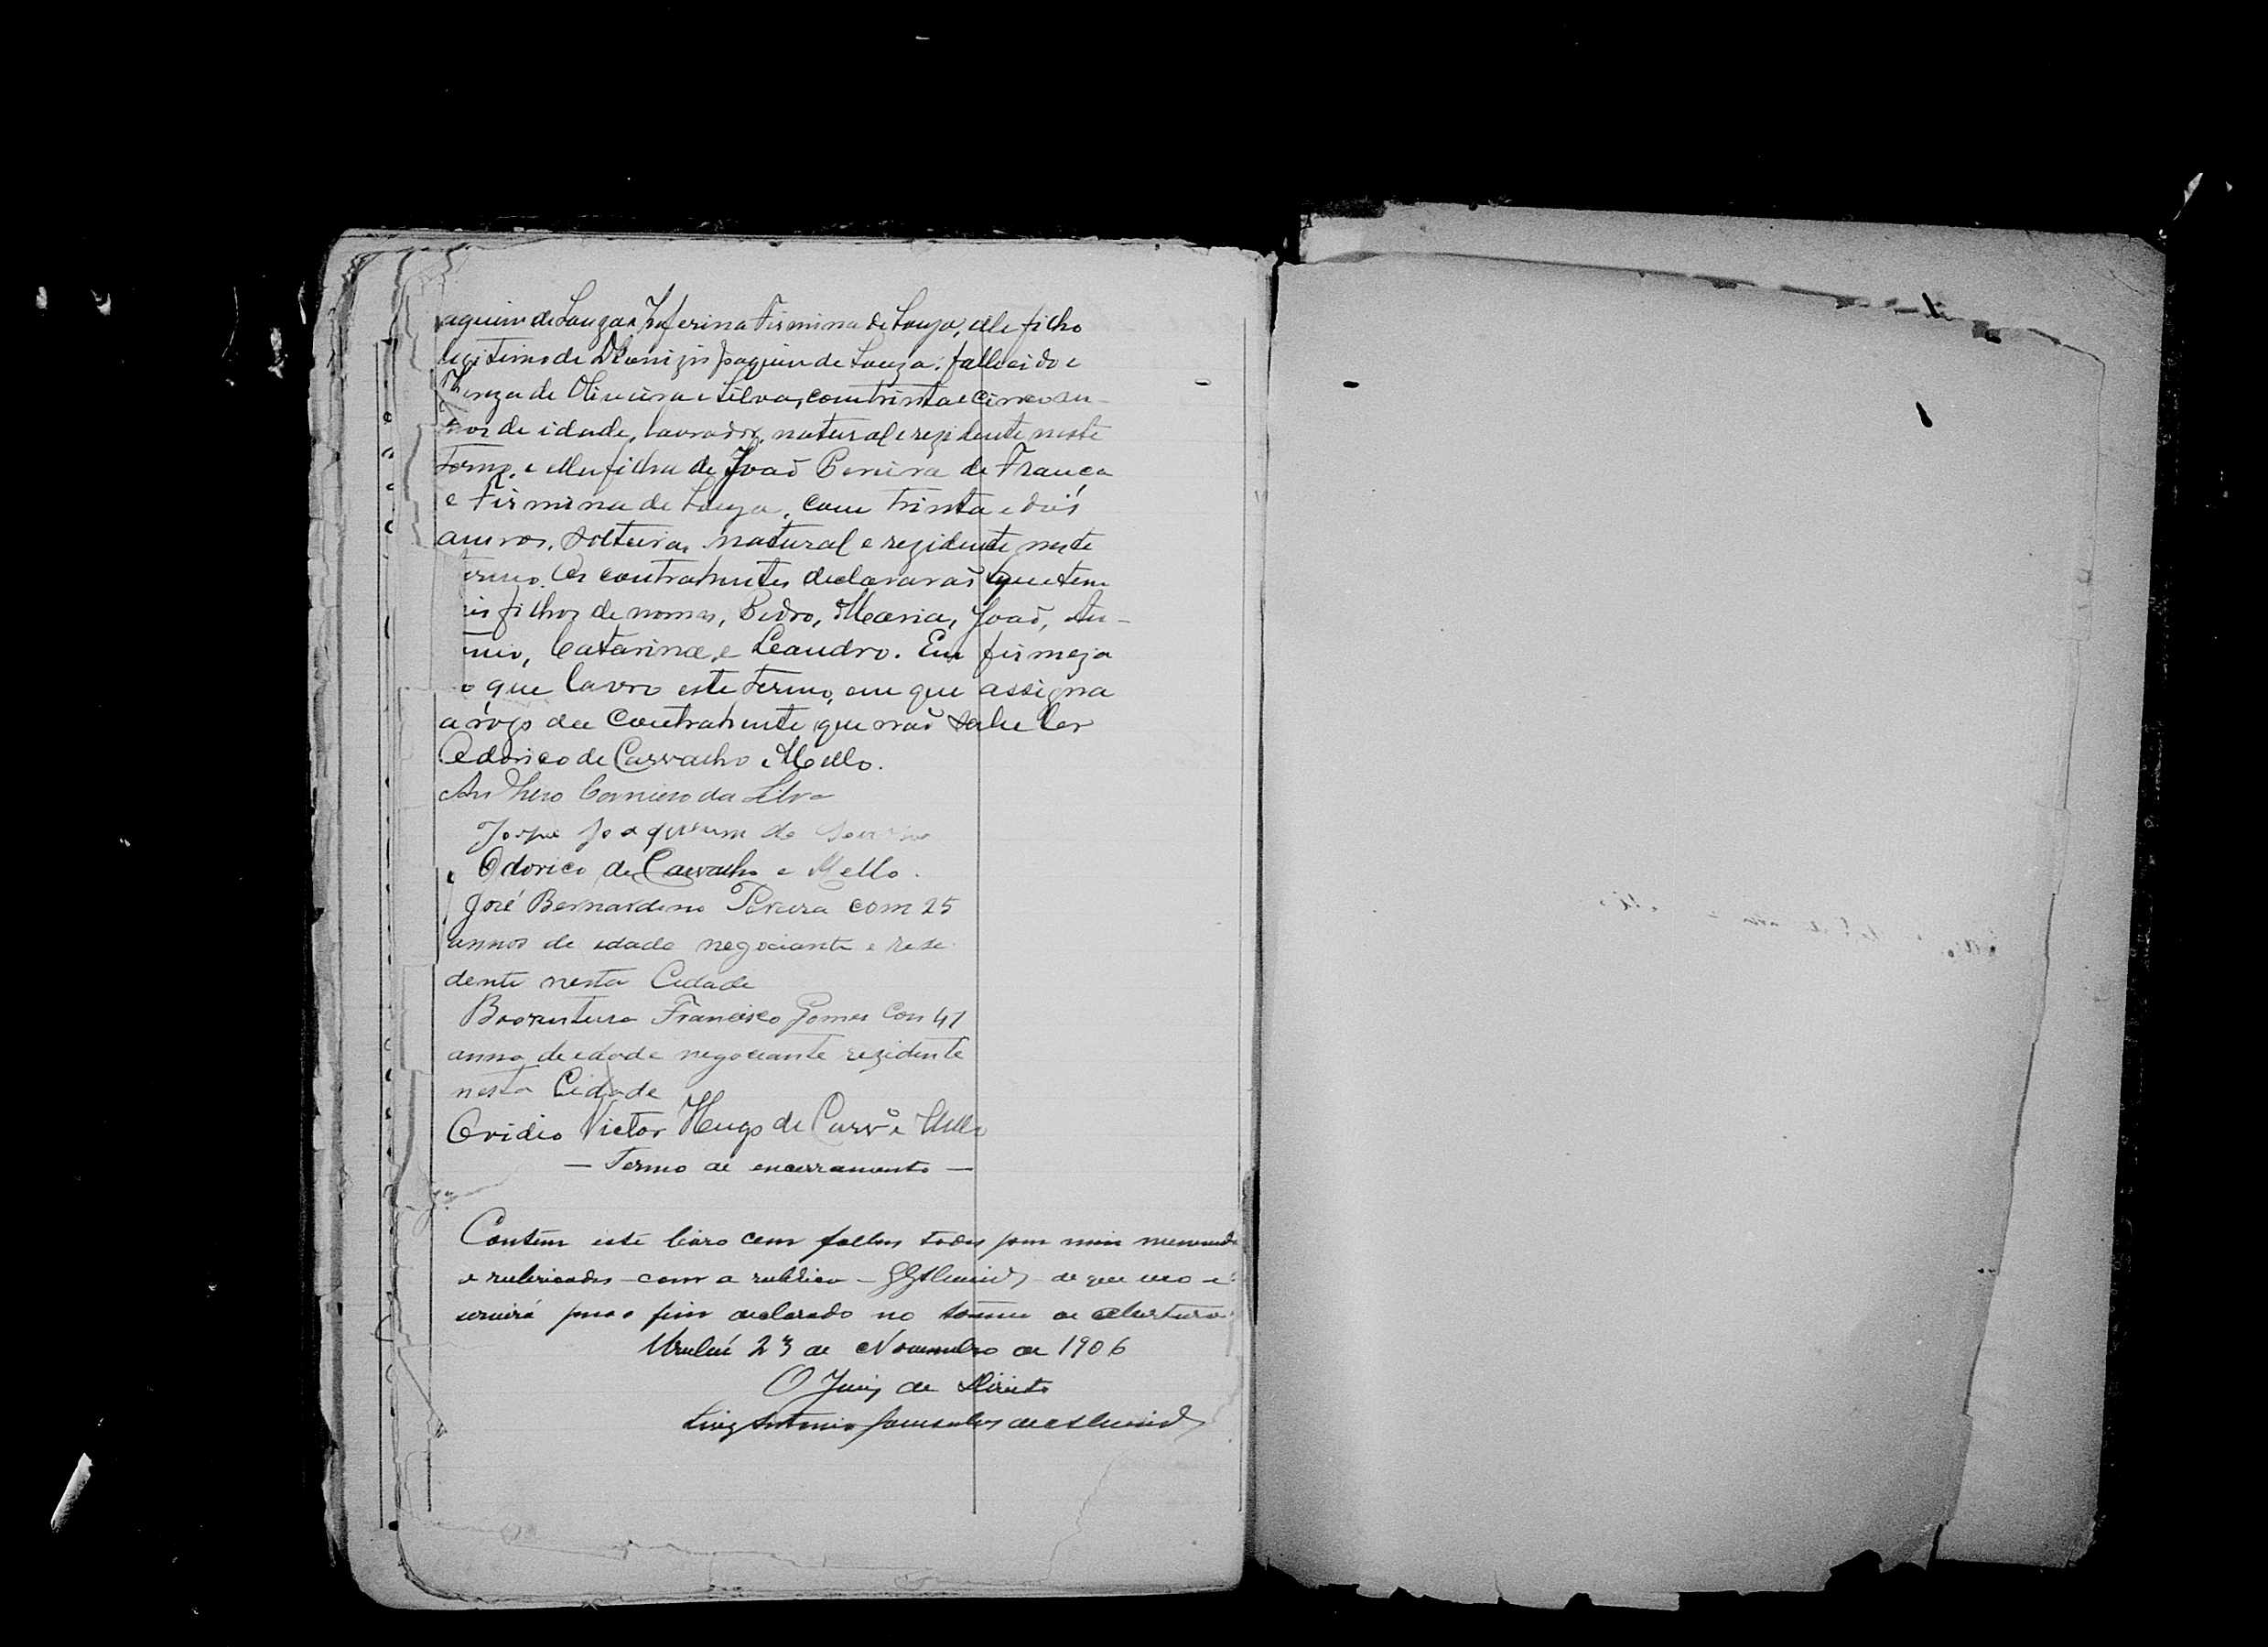 aquim de Souza e Zeferina Firmina de Souza, elle filho
legitimo de Dionizio Joaquim de Souza: fallecido e
Thereza de Oliveira e Silva, com trinta e cinco an-
nos de idade, lavrador, natural e rezidente neste
termo, e ella filha de João Pereira de França
e Firmina de Souza, com trinta e dois
annos, solteira, natural e rezidente neste
termo. Os contrahentes declararão que tem
is filhos de nomes, Pedro, Maria, João, An-
onio, Catarina, e Leandro. Em firmeza
o que lavro este termo, em que assigna
a rogo da contrahente que não sabe ler
Odorico de Carvalho e Mello.
Anthero Carneiro da Silva
Joaquim de Souza
Odorico de Carvalho e Mello.
José Bernardino Pereira com 25
annos de edade negociante e rese
dente nesta Cidade
Boaventura Francisco Gomes Con 41
anno de edade negociante rezidente
nesta Cidade
Ovidio Victor Hugo de Carvº e Mello
— Termo de encerramento —
Contem este livro cem folhas todas por mim numerada
e rubricadas — com a rubrica — de que uso e
servirá para o fim declarado no termo de abertura.
Urussuhy 23 de Novembro de 1906
O Juiz de Direito
Luiz Antonio Gonsalves de Almeida